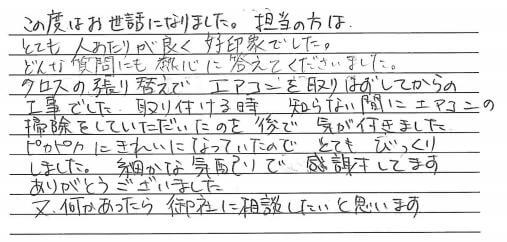 この度はお世話になりました。担当の方は、
とても人あたりが良く好印象でした。
どんな質問にも熱心に答えてくださいました。
クロスの張り替えで エアコンを取りはずしてからの
工事でした。取り付ける時 知らない間にエアコンの
掃除をしていただいたのを後で気が付きました
ピカピカにきれいになっていたので とても びっくり
しました。細かな気配りで 感謝してます
ありがとうございました
又、何かあったら 御社に相談したいと思います